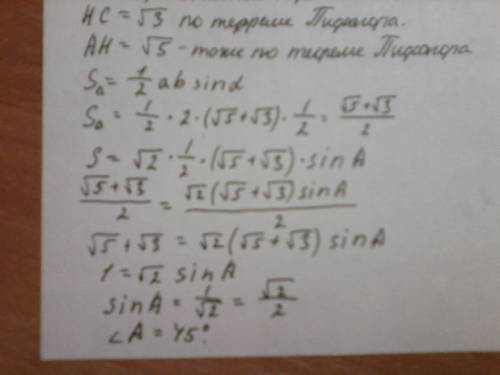 HC = √3 по теореме Пифагора.
AH = √5 - тоже по теореме Пифагора
S△ = 1/2 ab sinα
S△ = 1/2 · 2 · (√5+√3) · 1/2 = (√5+√3)/2
S = √2 · 1/2 · (√5+√3) · sin A
(√5+√3)/2 = (√2(√5+√3) sin A)/2
√5+√3 = √2(√5+√3) sin A
1 = √2 sin A
sin A = 1/√2 = √2/2
∠A = 45°